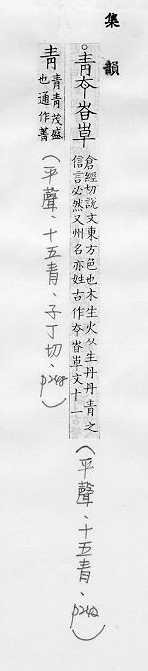 集韻
。青𡴑𡶀𡴋 倉經切說文東方色也木生火从生丹丹青之
信言必然又州名亦姓古作𡴑𡶀𡴋文十一
(平聲、十五青、p242)
青 青青茂盛
也通作菁
(平聲、十五青、子丁切、p248)